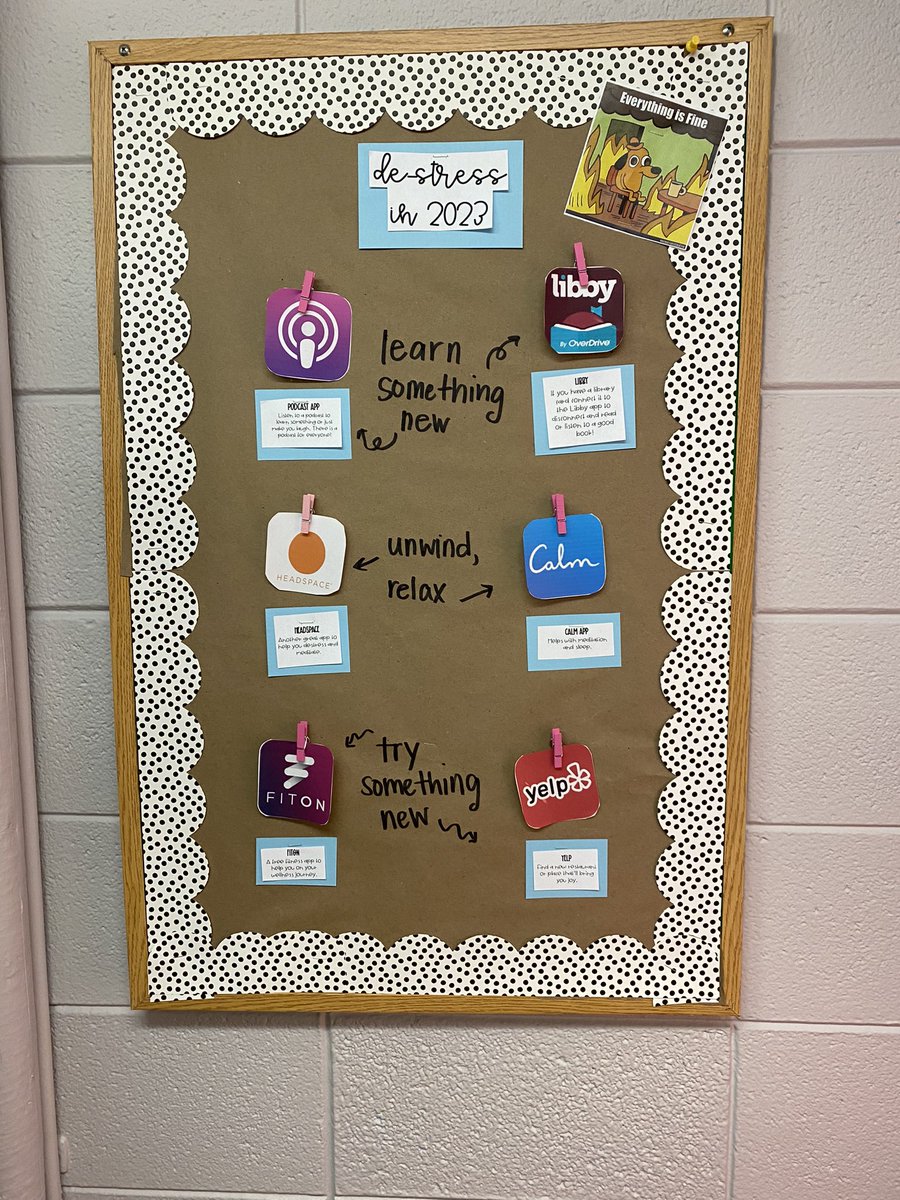 Everything is Fine
de-stress
in 2023
libby
By OverDrive
learn
something
new
PODCAST APP
Listen to a podcast to
learn something or just
make you laugh. There is a
podcast for everyone!
LIBBY
If you have a library
card connect it to
the Libby app to
disconnect and read
or listen to a good
book!
HEADSPACE
unwind,
relax
Calm
HEADSPACE
Another great app to
help you destress and
meditate.
CALM APP
Helps with meditation
and sleep.
FITON
try
something
new
yelp
FITON
A free fitness app to
help you on your
wellness journey.
YELP
Find a new restaurant
or place that'll bring
you joy.